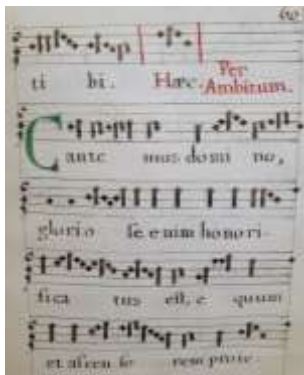 ti bi. Hæc. Per
Ambitum.
Cante mus domi no,
glorio se e nim honori-
fica tus est, e quum
et ascen so rem proie